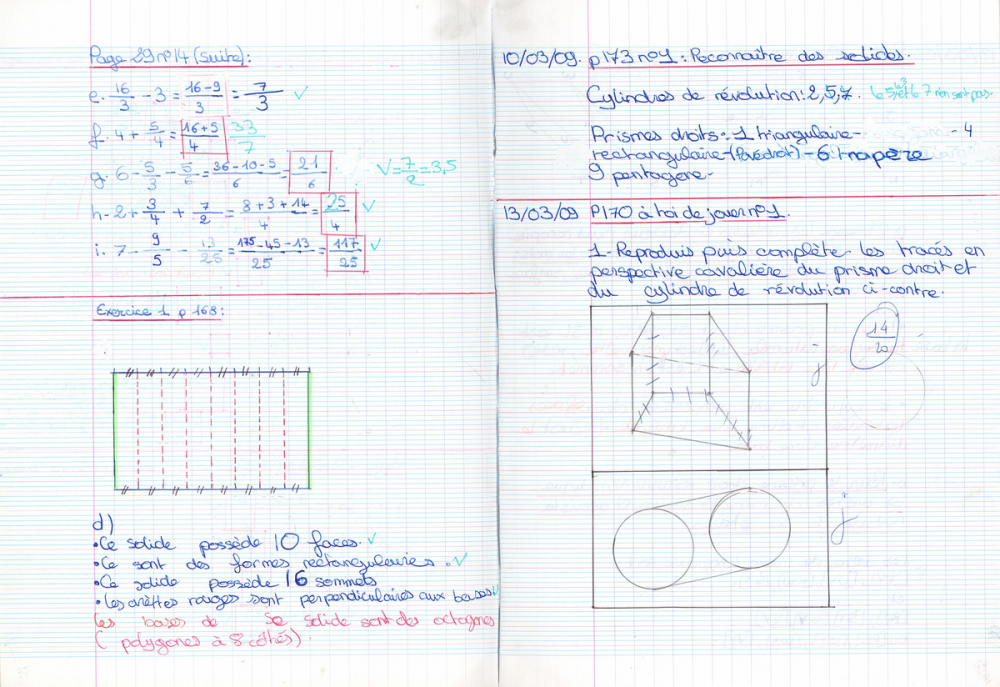 Page 29 n°14 (suite):
e. 16/3 - 3 = 16-9/3 = 7/3 ✓
f. 4 + 5/4 = 16+5/4 33/7
g. 6 - 5/3 - 5/6 = 36-10-5/6 = 21/6 V = 7/2 = 3,5
h - 2 + 3/4 + 7/2 = 8+3+14/4 = 25/4 ✓
i. 7 - 9/5 - 13/25 = 175-45-13/25 = 117/25 ✓
Exercice 1 p 168:
d)
• Ce solide possède 10 faces. ✓
• Ce sont des formes rectangulaires. ✓
• Ce solide possède 16 sommets
• Les arêttes rouges sont perpendiculaires aux bases
Les bases de se solide sont des octogones
( polygones à 8 côtés).
10/03/09. p173 n°1: Reconnaître des solides.
Cylindres de révolution: 2,5,7.
Prismes droits: 1 triangulaire - 4
rectangulaire - (Pavé droit) - 6: trapère
9 pentagone -
13/03/09 P170 à toi de jouer n°1.
1- Reproduis puis complète les tracés en
perspective cavalière du prisme droit et
du cylindre de révolution ci-contre.
14/20
j
j